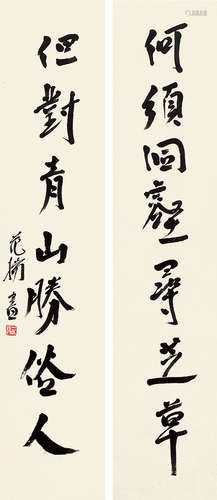 何須洞壑尋芝草
但對青山勝俗人
范揚書